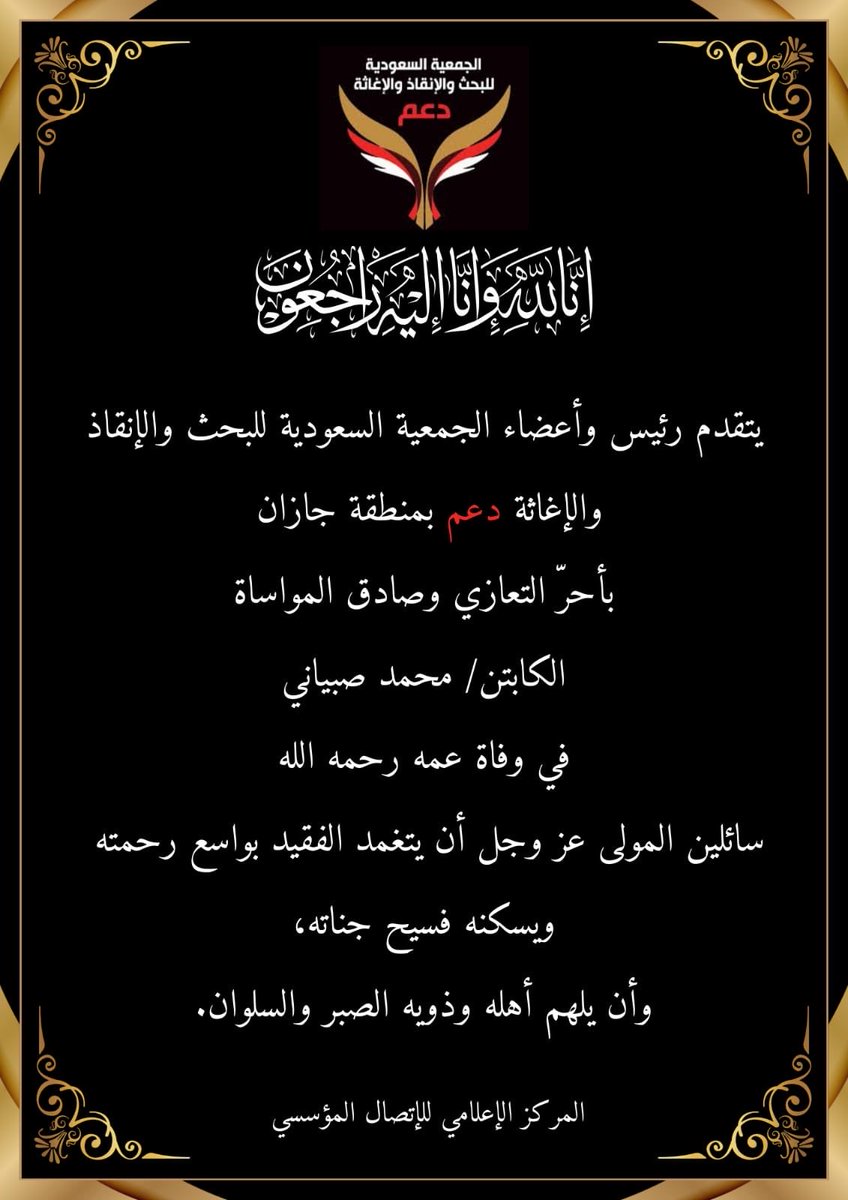 الجمعية السعودية
للبحث والإنقاذ والإغاثة
دعم
إِنَّا لِلَّهِ وَإِنَّا إِلَيْهِ رَاجِعُونَ
يتقدم رئيس وأعضاء الجمعية السعودية للبحث والإنقاذ
والإغاثة دعم بمنطقة جازان
بأحرّ التعازي وصادق المواساة
الكابتن/ محمد صبياني
في وفاة عمه رحمه الله
سائلين المولى عز وجل أن يتغمد الفقيد بواسع رحمته
ويسكنه فسيح جناته،
وأن يلهم أهله وذويه الصبر والسلوان.
المركز الإعلامي للإتصال المؤسسي